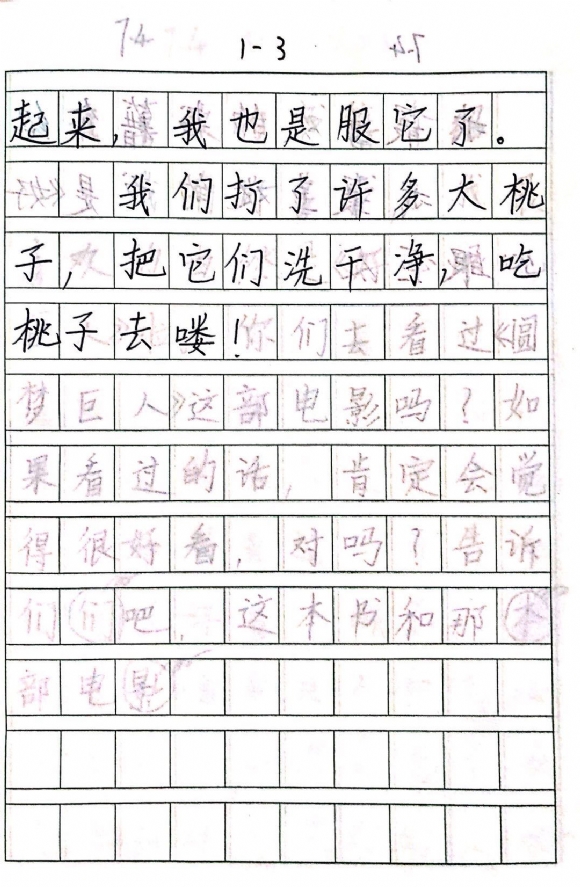 1-3
起来，我也是服它了。
我们拧了许多大桃
子，把它们洗干净，吃
桃子去喽！你们去看过《圆
梦巨人》这部电影吗？如
果看过的话，肯定会觉
得很好看，对吗？告诉
们们吧，这本书和那本
部电影